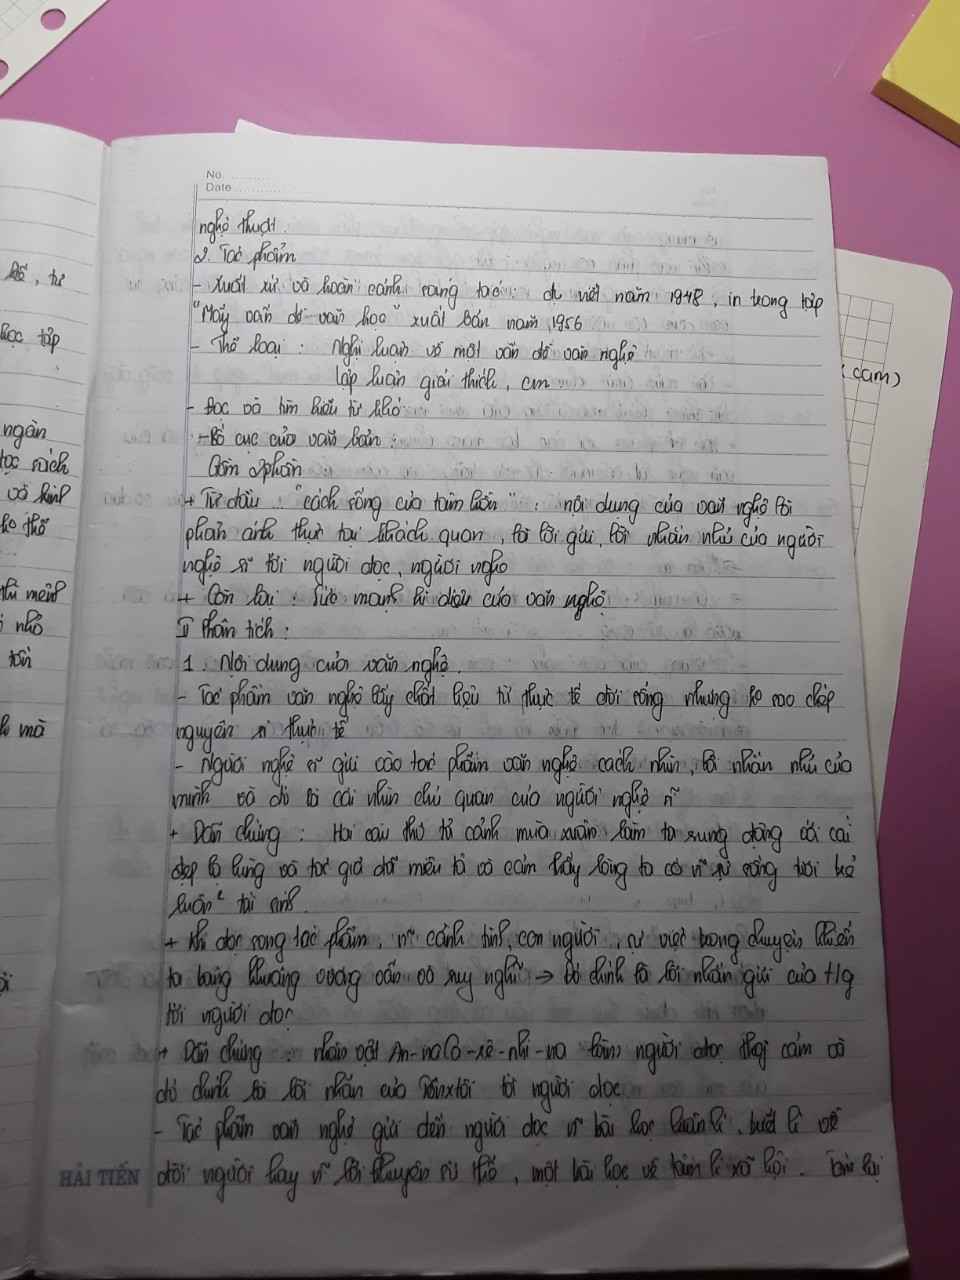 No. ..........
Date ..............
nghệ thuật.
2. Tác phẩm
- Xuất xứ và hoàn cảnh sáng tác: đc viết năm 1948, in trong tập
"Mấy vấn đề văn học" xuất bản năm 1956
- Thể loại: Nghị luận về một vấn đề văn nghệ
lập luận giải thích, cm
- Đọc và tìm hiểu từ khó
- Bố cục của văn bản:
Gồm 2 phần
+ Từ đầu: "cách sống của tâm hồn": nội dung của văn nghệ là
phản ánh thực tại khách quan, là lời gửi, lời nhắn nhủ của người
nghệ sĩ tới người đọc, người nghe
+ Còn lại: Sức mạnh kì diệu của văn nghệ
II Phân tích:
1. Nội dung của văn nghệ.
- Tác phẩm văn nghệ lấy chất liệu từ thực tế đời sống nhưng ko sao chép
nguyên xi thực tế
- Người nghệ sĩ gửi vào tác phẩm văn nghệ cách nhìn, lời nhắn nhủ của
mình và đó là cái nhìn chủ quan của người nghệ sĩ
+ Dẫn chứng: Hai câu thơ tả cảnh mùa xuân làm ta rung động với cái
đẹp lạ lùng mà tác giả đã miêu tả và cảm thấy lòng ta có sự sống tươi trẻ
luôn² tái sinh.
+ Khi đọc xong tác phẩm, cảnh tình, con người, sự việc trong chuyện khiến
ta bâng khuâng vương vấn và suy nghĩ → Đó chính là lời nhắn gửi của t/g
tới người đọc
+ Dẫn chứng: nhân vật An-na Ca-rê-nhi-na làm người đọc thấy cảm và
đó chính là lời nhắn của Tônxtôi tới người đọc
- Tác phẩm văn nghệ gửi đến người đọc bài học luân lí, triết lí về
đời người hay lời khuyên xử thế, một bài học về tâm lí xã hội. Tóm lại
HẢI TIẾN
kể, tư
học tập
ngàn
đọc sách
và hình
ko thể
thì mênh
nhỏ
tồn
mà
(cam)